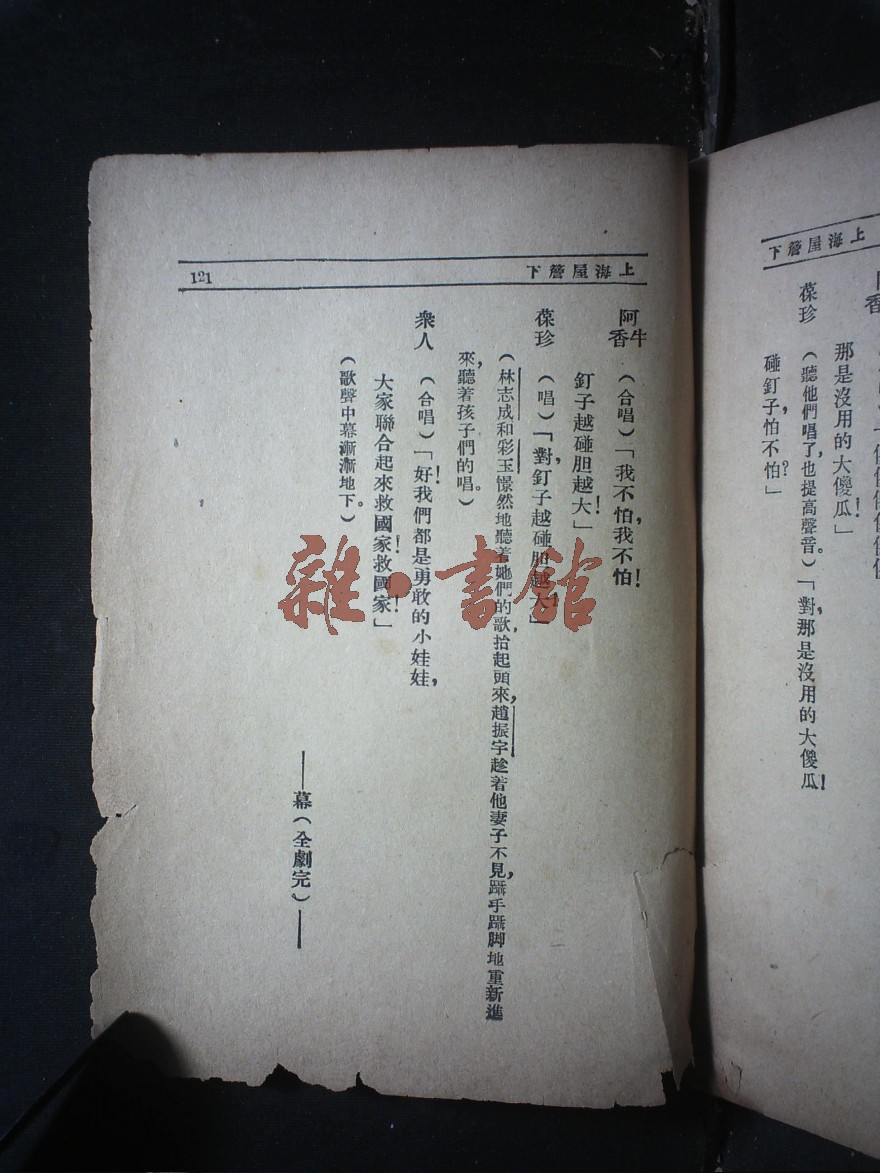 上海屋簷下
香
那是沒用的大傻瓜！」
葆珍　（聽他們唱了，也提高聲音。）「對，那是沒用的大傻瓜！
碰釘子，怕不怕？」
上海屋簷下
121
阿牛香　（合唱）「我不怕，我不怕！
釘子越碰胆越大！」
葆珍　（唱）「對，釘子越碰胆越大」
（林志成和彩玉憬然地聽着她們的歌，抬起頭來，趙振宇趁着他妻子不見，躡手躡脚地重新進
來，聽着孩子們的唱。）
衆人　（合唱）「好！我們都是勇敢的小娃娃，
大家聯合起來救國家！救國家！」
（歌聲中幕漸漸地下。）
——幕（全劇完）——
雜·書館